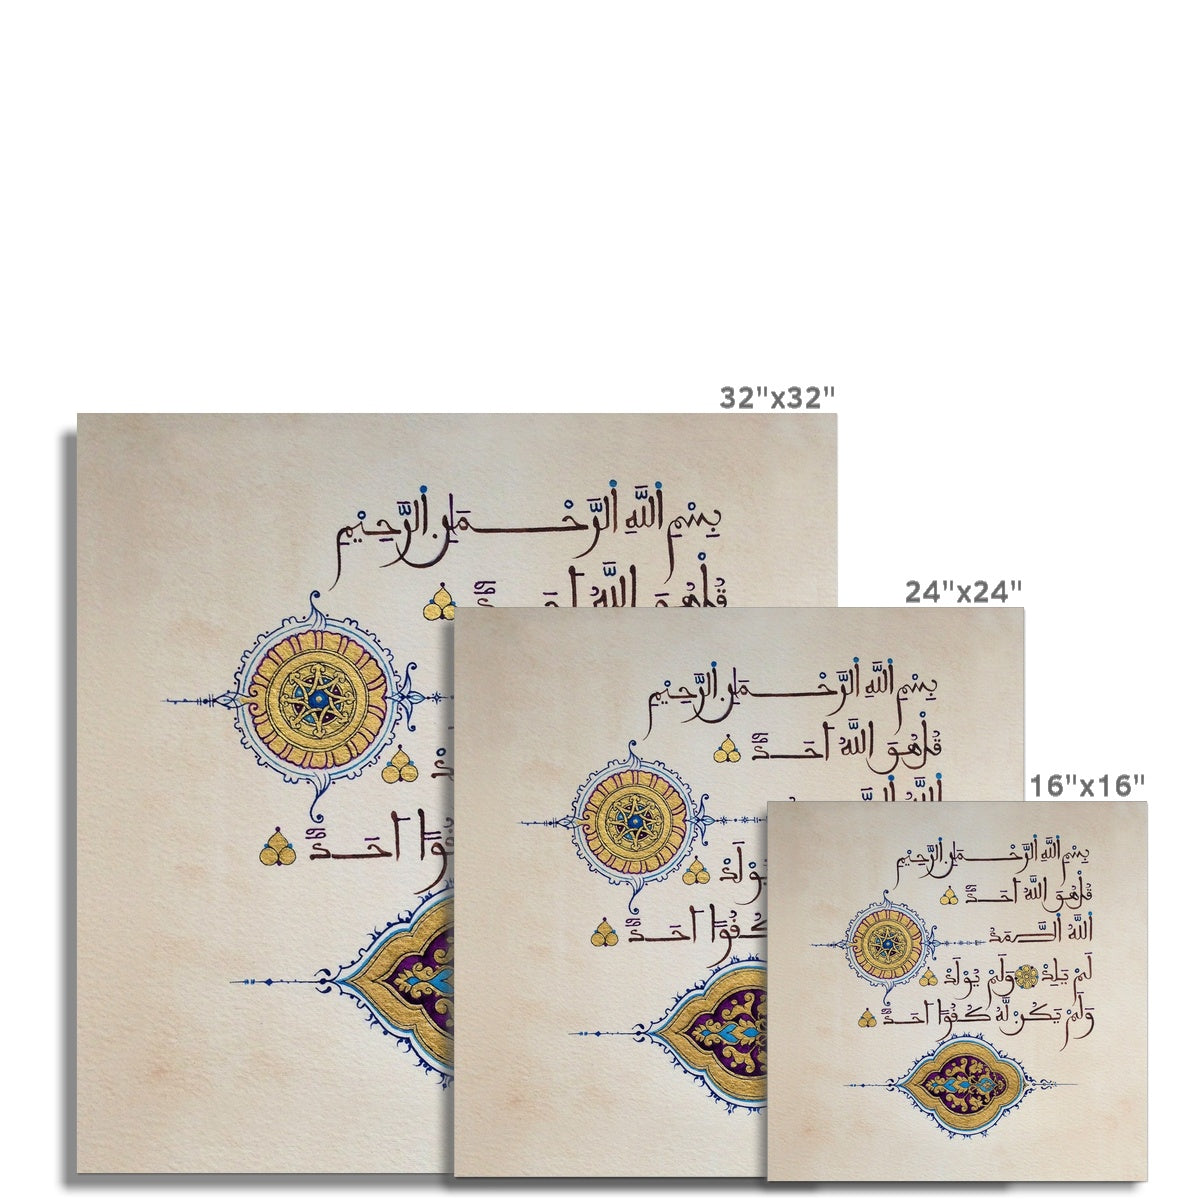 32"x32"
بِسْمِ اللَّهِ الرَّحْمَٰنِ الرَّحِيْمِ
قُلْ هُوَ اللَّهُ أَحَدٌ
يُوْلَدْ
كُفُوًا أَحَدٌ
24"x24"
بِسْمِ اللَّهِ الرَّحْمَٰنِ الرَّحِيْمِ
قُلْ هُوَ اللَّهُ أَحَدٌ
يُوْلَدْ
كُفُوًا أَحَدٌ
16"x16"
بِسْمِ اللَّهِ الرَّحْمَٰنِ الرَّحِيْمِ
قُلْ هُوَ اللَّهُ أَحَدٌ
اللَّهُ الصَّمَدُ
لَمْ يَلِدْ وَلَمْ يُوْلَدْ
وَلَمْ يَكُنْ لَّهُ كُفُوًا أَحَدٌ